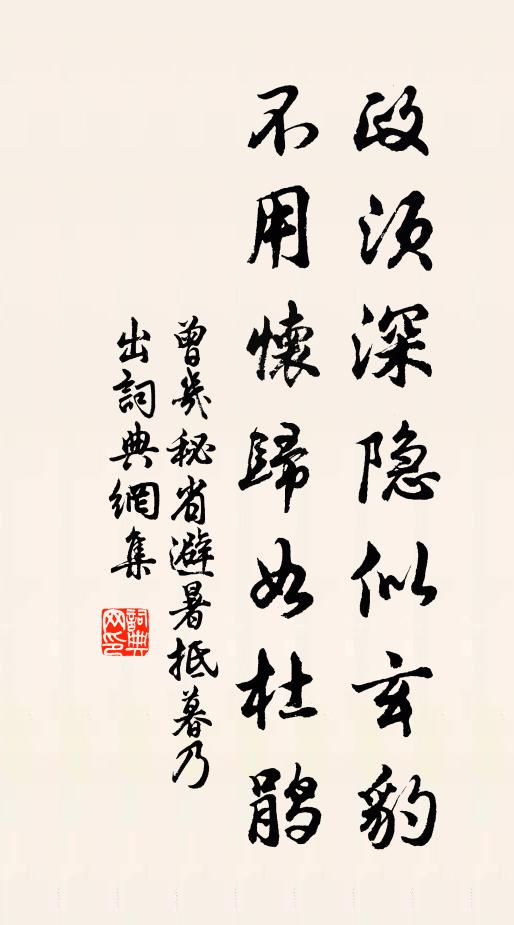 政须深隐似玄豹
不用懷歸如杜鹃
曾幾秘省避暑抵暮乃
出詞典網集
詞典網印